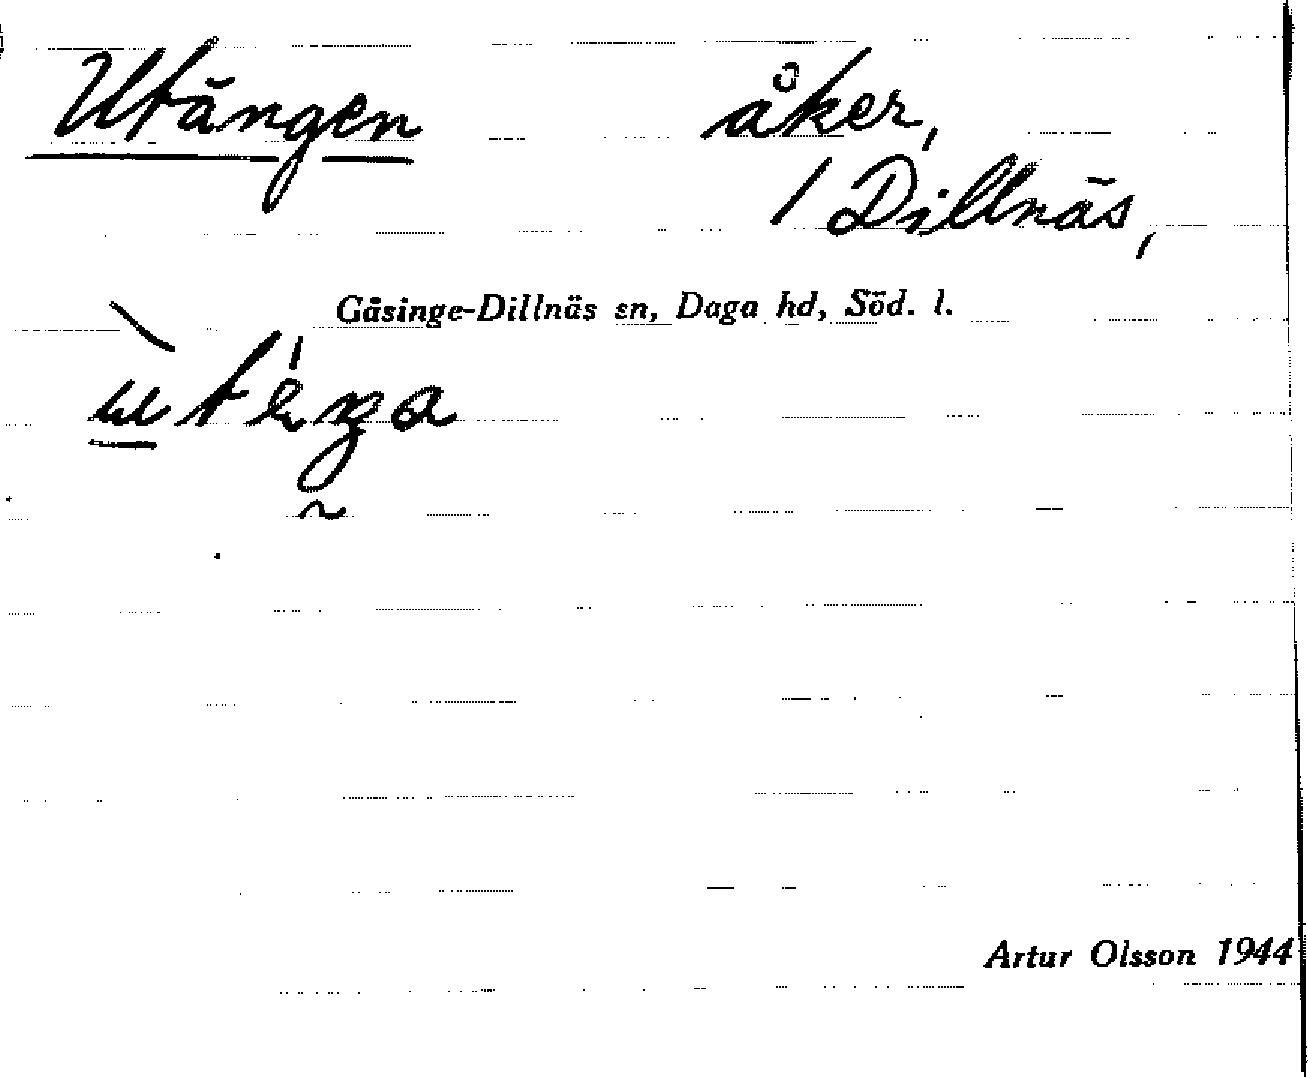 Utängen åker,
/ Dillnäs,
Gåsinge-Dillnäs sn, Daga hd, Söd. l.
Artur Olsson 1944